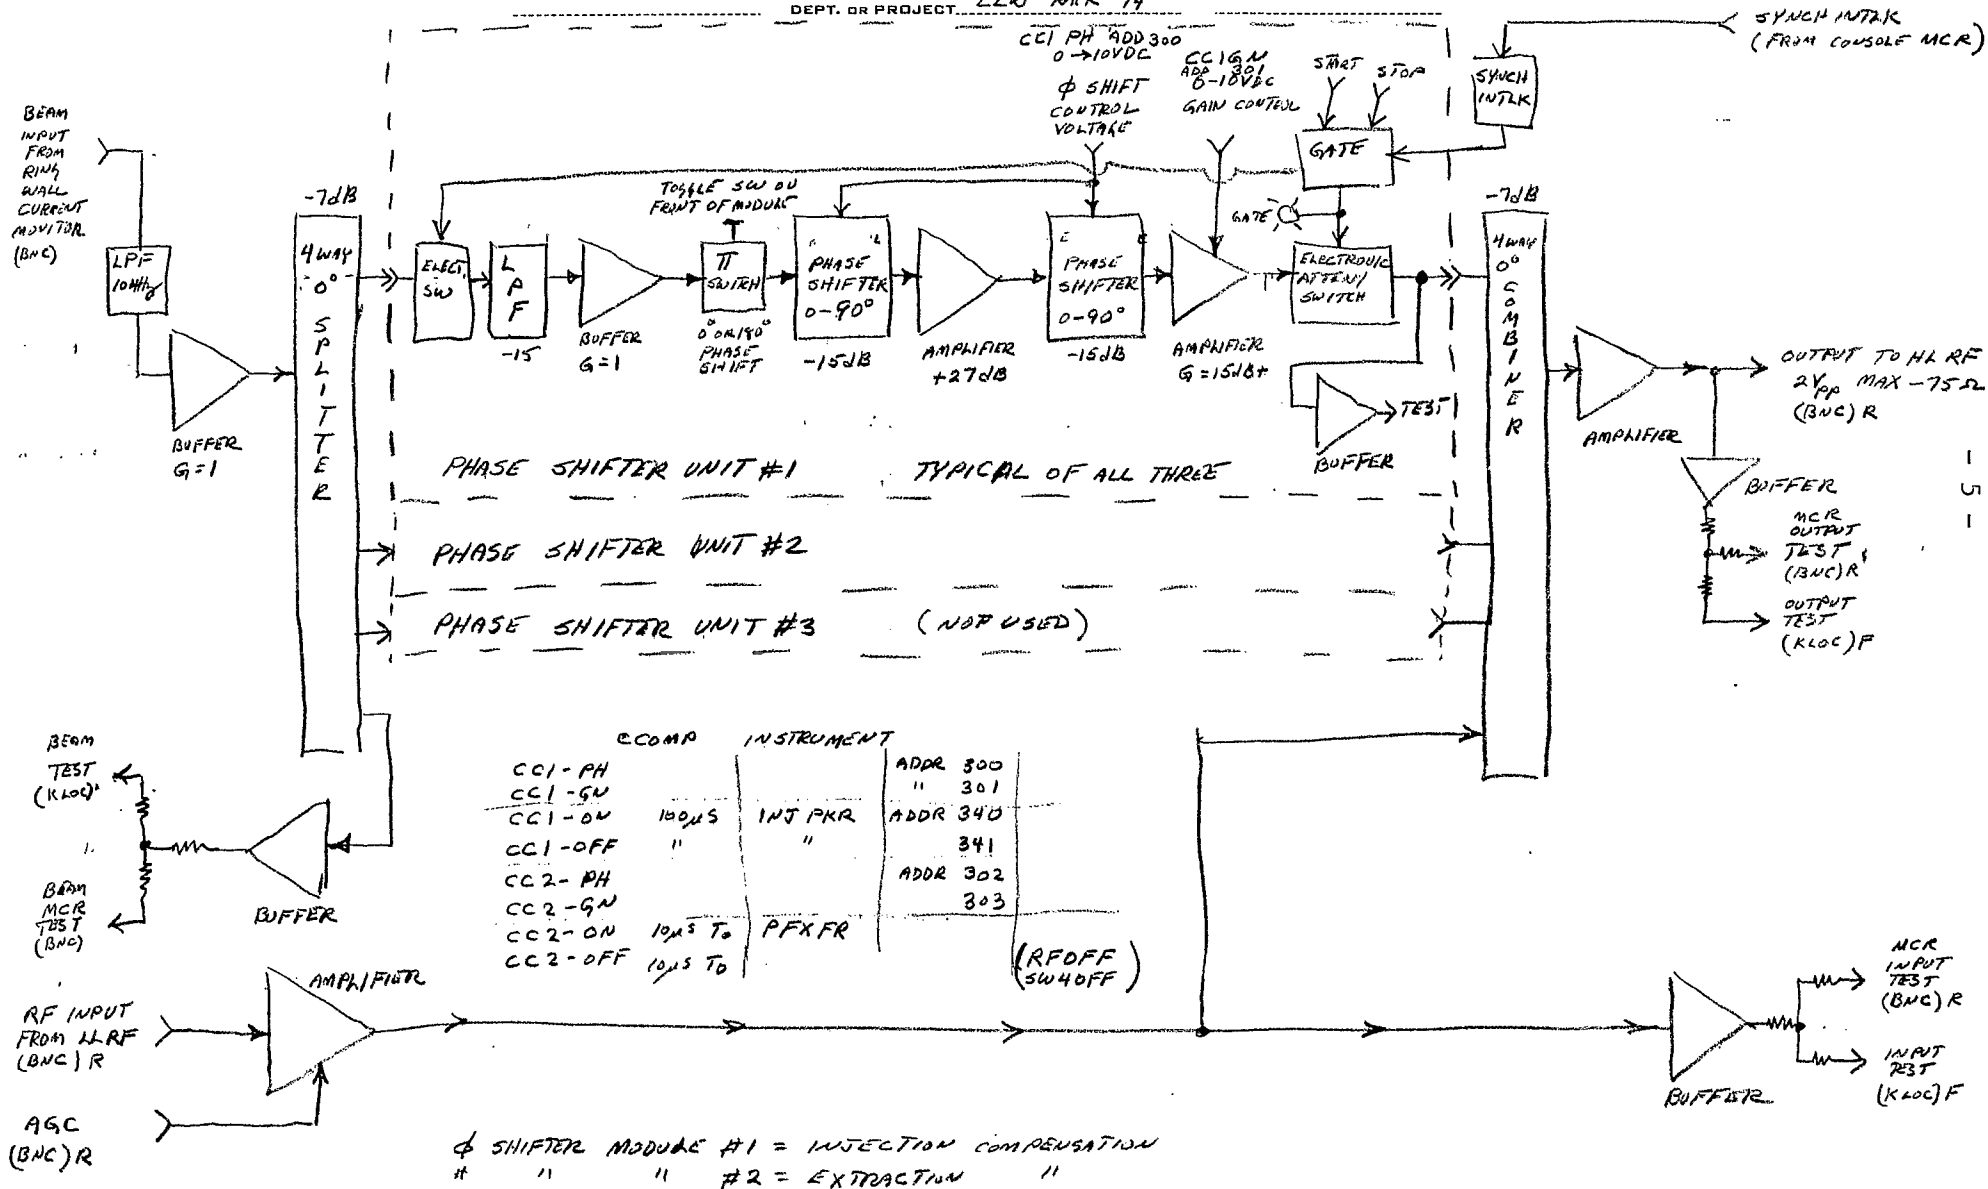 DEPT. OR PROJECT
SYNCH INTLK
(FROM CONSOLE MCR)
SYNCH
INTLK
CC1 PH ADD 300
0→10VDC
φ SHIFT
CONTROL
VOLTAGE
CC1GN
ADD 301
0-10VDC
GAIN CONTROL
START
STOP
GATE
GATE
BEAM
INPUT
FROM
RING
WALL
CURRENT
MONITOR
(BNC)
LPF
10MHz
BUFFER
G=1
-7dB
4 WAY
0°
SPLITTER
ELECT.
SW
LPF
-15
BUFFER
G=1
TOGGLE SW ON
FRONT OF MODULE
π
SWITCH
0° OR 180°
PHASE
SHIFT
PHASE
SHIFTER
0-90°
-15dB
AMPLIFIER
+27dB
PHASE
SHIFTER
0-90°
-15dB
AMPLIFIER
G=15dB+
ELECTRONIC
ATTEN/
SWITCH
TEST
BUFFER
-7dB
4 WAY
0°
COMBINER
AMPLIFIER
OUTPUT TO HL RF
2Vpp MAX -75Ω
(BNC) R
BUFFER
MCR
OUTPUT
TEST
(BNC) R
OUTPUT
TEST
(KLOC) F
- 5 -
PHASE SHIFTER UNIT #1 TYPICAL OF ALL THREE
PHASE SHIFTER UNIT #2
PHASE SHIFTER UNIT #3 (NOT USED)
BEAM
TEST
(KLOC)
BEAM
MCR
TEST
(BNC)
BUFFER
CCOMP INSTRUMENT
CC1-PH ADDR 300
CC1-GN " 301
CC1-ON 100μS INJ PKR ADDR 340
CC1-OFF " " 341
CC2-PH ADDR 302
CC2-GN 303
CC2-ON 10μS T0 PFXFR
CC2-OFF 10μS T0
(RFOFF
SW4OFF)
AMPLIFIER
RF INPUT
FROM LLRF
(BNC) R
AGC
(BNC) R
BUFFER
MCR
INPUT
TEST
(BNC) R
INPUT
TEST
(KLOC) F
φ SHIFTER MODULE #1 = INJECTION COMPENSATION
" " " #2 = EXTRACTION "